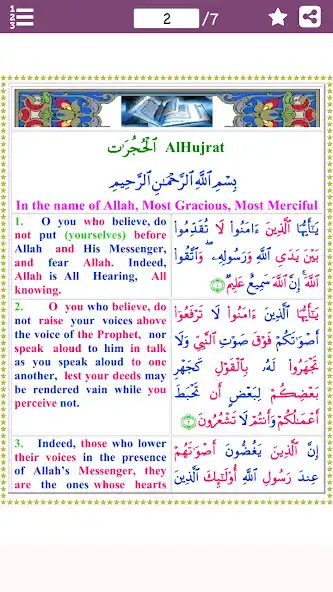 1
2
3
2 /7
الْحُجُرَات AlHujrat
بِسْمِ اللَّهِ الرَّحْمَٰنِ الرَّحِيمِ
In the name of Allah, Most Gracious, Most Merciful
1. O you who believe, do
not put (yourselves) before
Allah and His Messenger,
and fear Allah. Indeed,
Allah is All Hearing, All
knowing.
يَٰٓأَيُّهَا ٱلَّذِينَ ءَامَنُوا۟ لَا تُقَدِّمُوا۟
بَيْنَ يَدَىِ ٱللَّهِ وَرَسُولِهِۦ ۖ وَٱتَّقُوا۟
ٱللَّهَ ۚ إِنَّ ٱللَّهَ سَمِيعٌ عَلِيمٌ ﴿١﴾
2. O you who believe, do
not raise your voices above
the voice of the Prophet, nor
speak aloud to him in talk
as you speak aloud to one
another, lest your deeds may
be rendered vain while you
perceive not.
يَٰٓأَيُّهَا ٱلَّذِينَ ءَامَنُوا۟ لَا تَرْفَعُوٓا۟
أَصْوَٰتَكُمْ فَوْقَ صَوْتِ ٱلنَّبِىِّ وَلَا
تَجْهَرُوا۟ لَهُۥ بِٱلْقَوْلِ كَجَهْرِ
بَعْضِكُمْ لِبَعْضٍ أَن تَحْبَطَ
أَعْمَٰلُكُمْ وَأَنتُمْ لَا تَشْعُرُونَ ﴿٢﴾
3. Indeed, those who lower
their voices in the presence
of Allah's Messenger, they
are the ones whose hearts
إِنَّ ٱلَّذِينَ يَغُضُّونَ أَصْوَٰتَهُمْ
عِندَ رَسُولِ ٱللَّهِ أُو۟لَٰٓئِكَ ٱلَّذِينَ